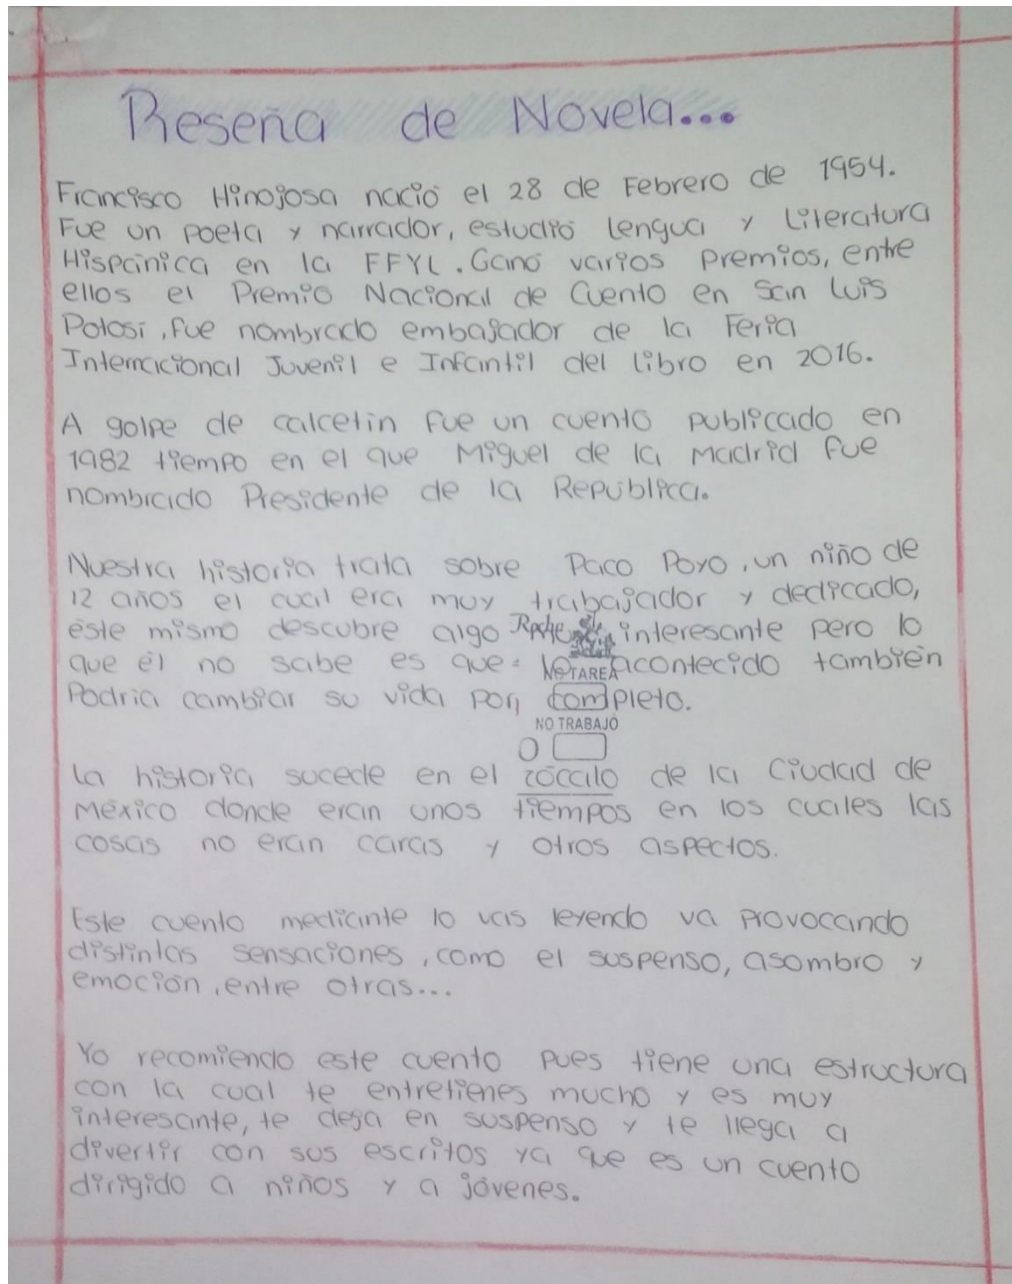 Reseña de Novela...
Francisco Hinojosa nació el 28 de Febrero de 1954.
Fue un poeta y narrador, estudió lengua y Literatura
Hispánica en la FFYL. Ganó varios premios, entre
ellos el Premio Nacional de Cuento en San Luis
Potosí, fue nombrado embajador de la Feria
Internacional Juvenil e Infantil del libro en 2016.
A golpe de calcetín fue un cuento publicado en
1982 tiempo en el que Miguel de la Madrid fue
nombrado Presidente de la República.
Nuestra historia trata sobre Paco Poyo, un niño de
12 años el cual era muy trabajador y dedicado,
éste mismo descubre algo interesante pero lo
que él no sabe es que lo acontecido también
Podría cambiar su vida por completo.
NO TAREA
NO TRABAJÓ
La historia sucede en el zóccalo de la Ciudad de
México donde eran unos tiempos en los cuales las
cosas no eran caras y otros aspectos.
Este cuento mediante lo vas leyendo va provocando
distintas sensaciones, como el suspenso, asombro y
emoción, entre otras...
Yo recomiendo este cuento pues tiene una estructura
con la cual te entretienes mucho y es muy
interesante, te deja en suspenso y te llega a
divertir con sus escritos ya que es un cuento
dirigido a niños y a jóvenes.